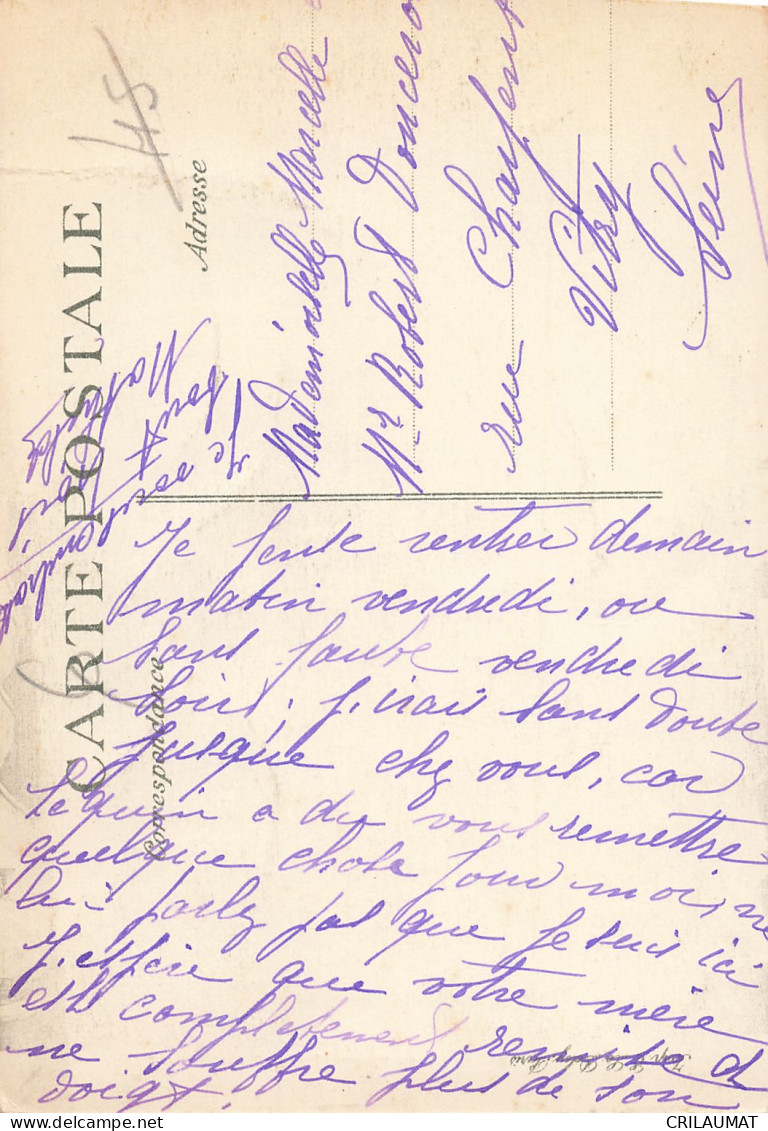 CARTE POSTALE
Correspondance
Adresse
45
Mademoiselle Marcelle
Mr Robert
rue
Vitry
Seine
Je pense rentrer demain
matin vendredi, ou
sans faute vendredi
soir; j'irais sans doute
jusque chez vous, car
a du vous remettre
quelque chose pour moi, ne
lui parlez pas que je suis ici
J'espère que votre mère
est complètement remise et
ne souffre plus de son
doigt.
Je vous embrasse
tous
Mathilde
CRILAUMAT